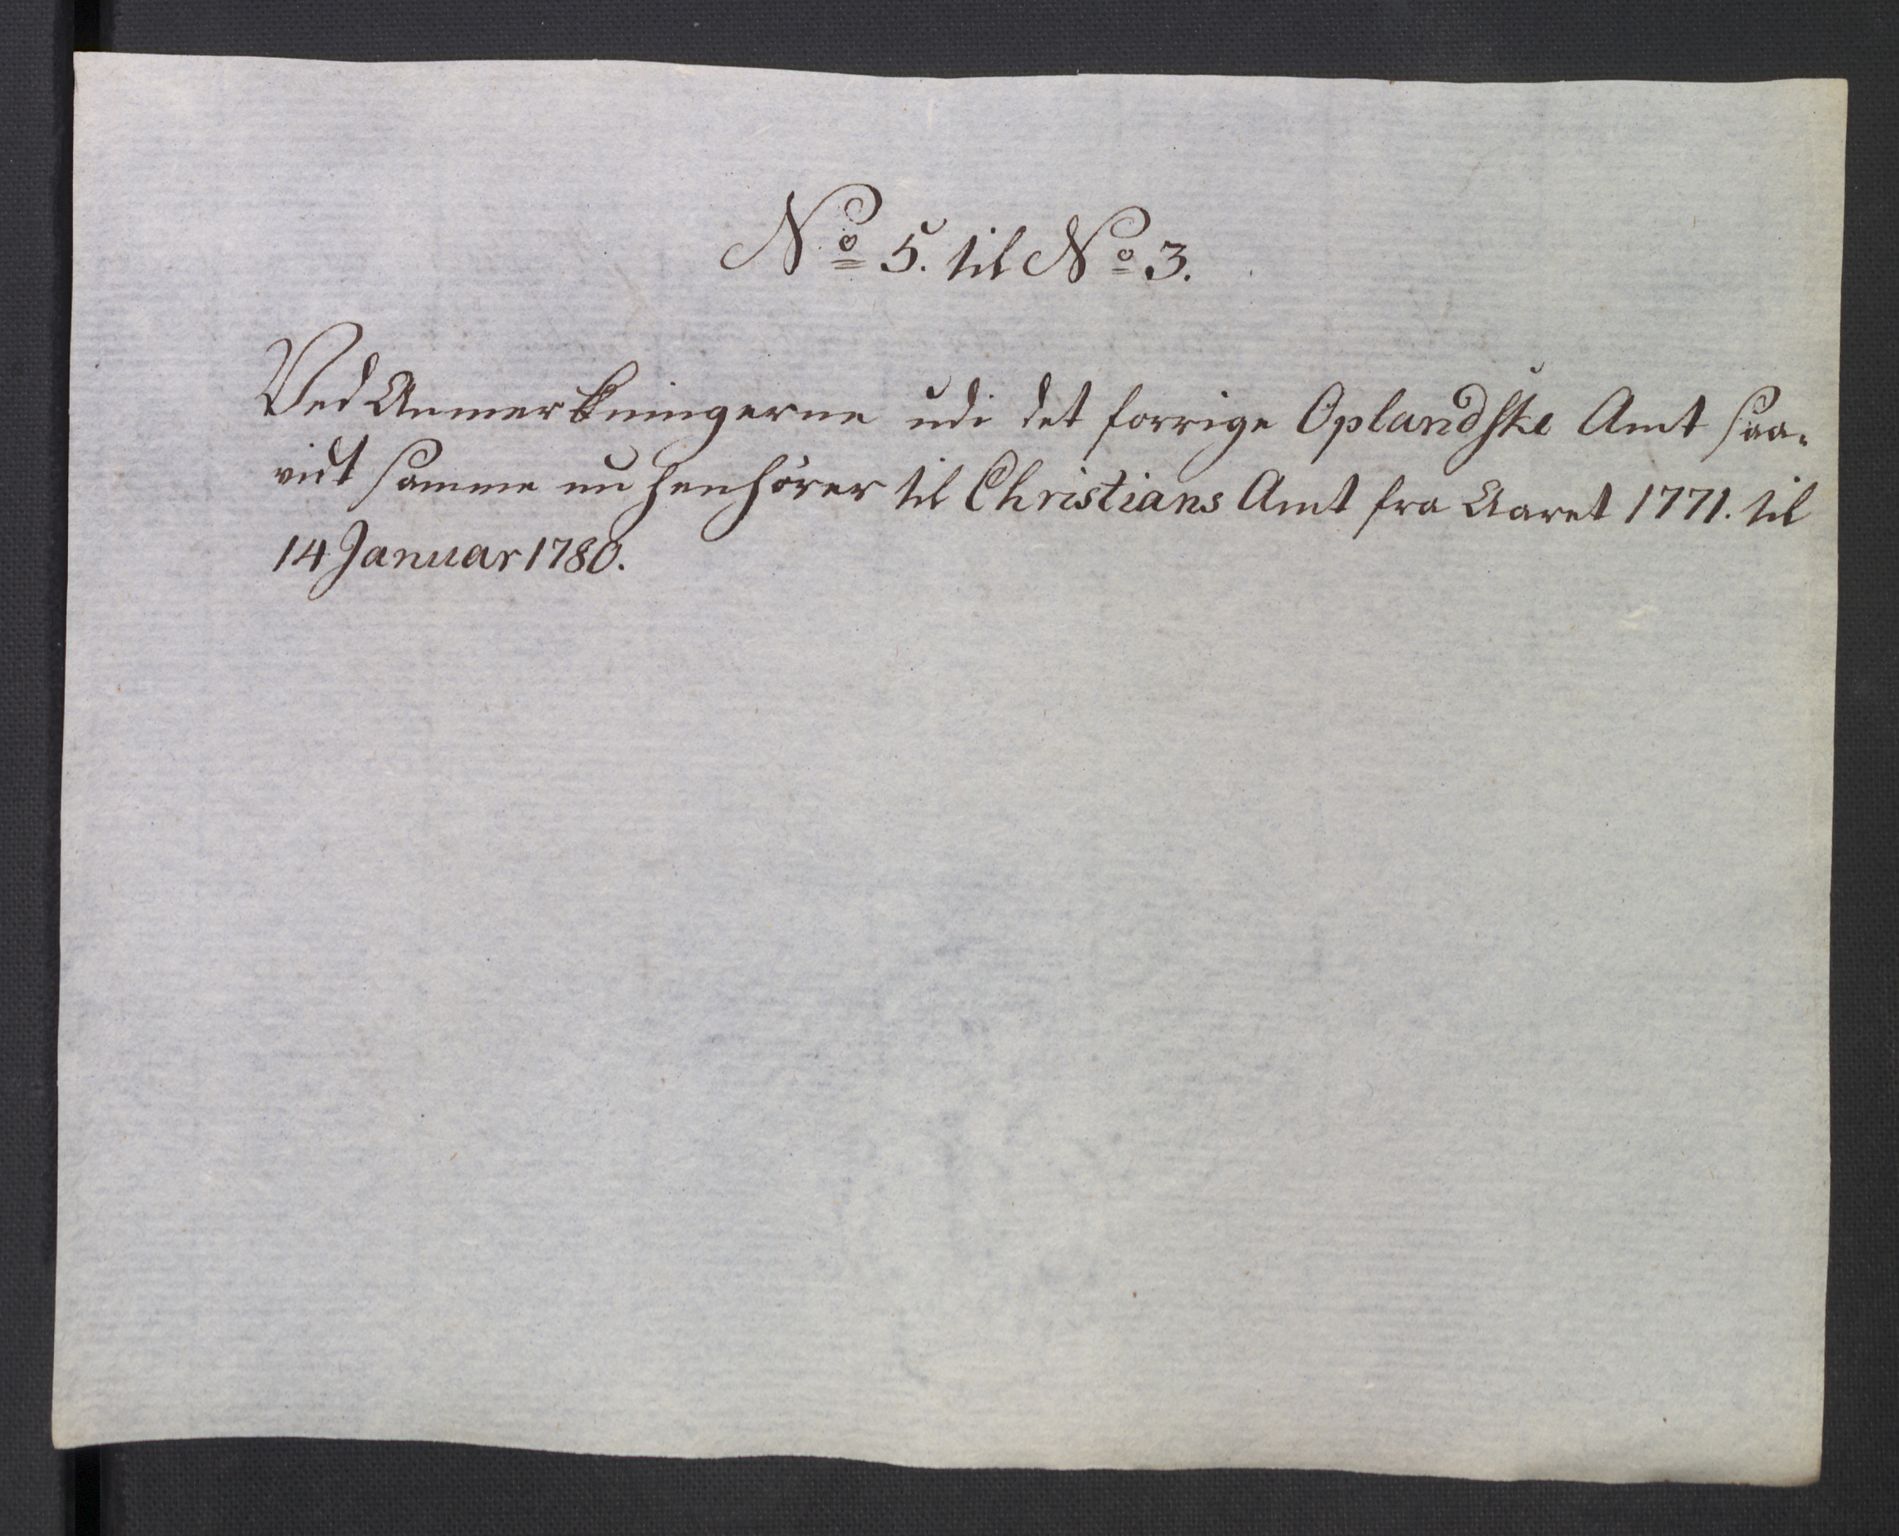 No 5. til No 3.
Ved Anmerkningerne udi det forrige Oplandske Amt saa-
vidt samme nu henhører til Christians Amt fra Aaret 1771. til
14 Januar 1780.